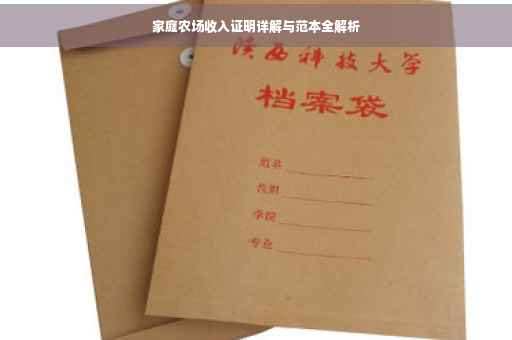 家庭农场收入证明详解与范本全解析
陕西科技大学
档案袋
姓名
学院
专业